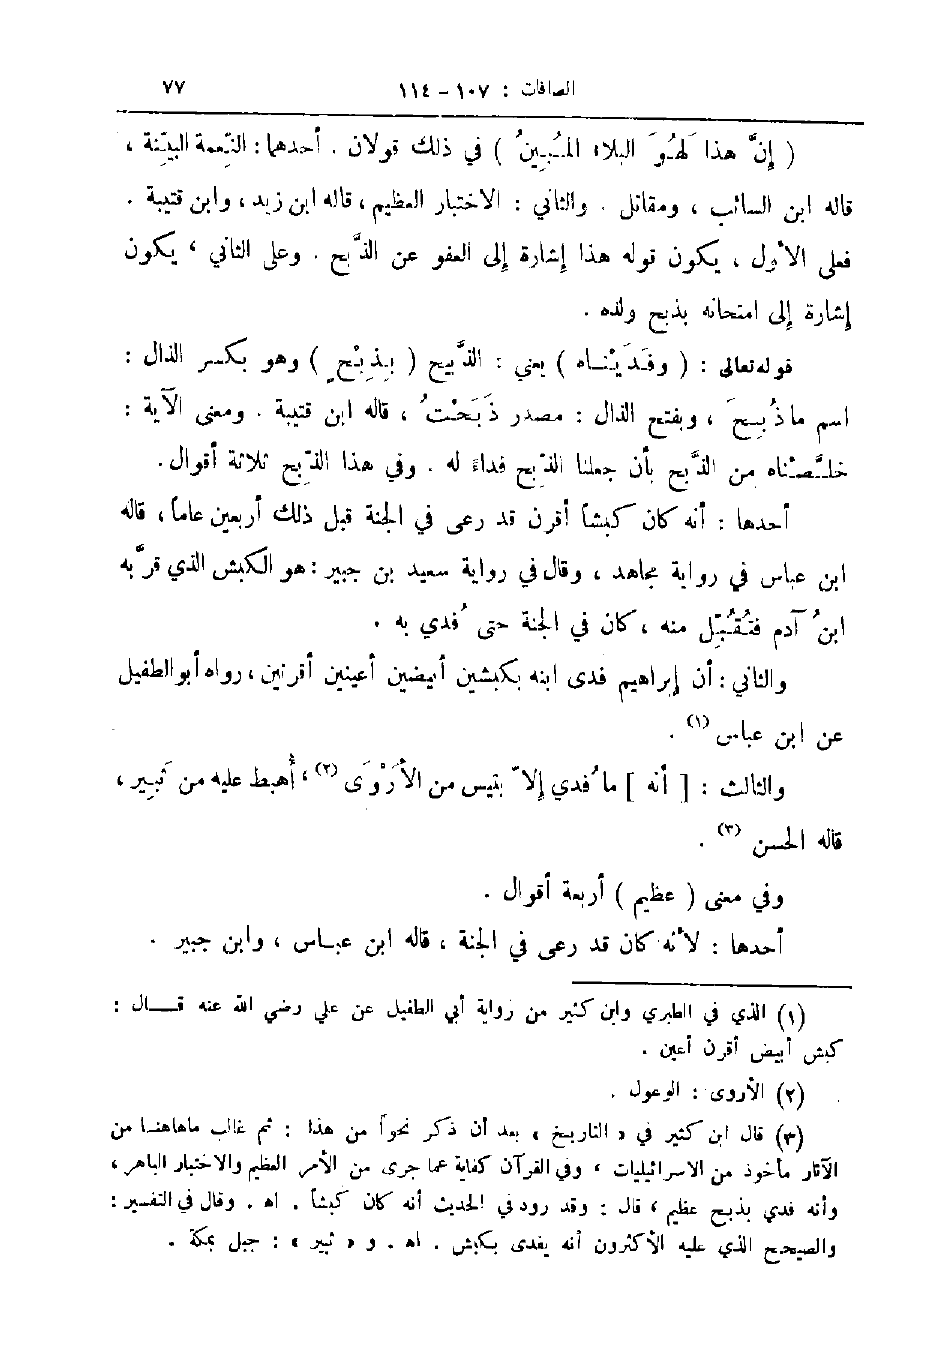 الصافات : ١٠٧ - ١١٤ ٧٧
( إِنَّ هذا لَهُوَ البلاء المُبِينُ ) في ذلك قولان . أحدهما : النِّعمة البيِّنة ،
قاله ابن السائب ، ومقاتل . والثاني : الاختبار العظيم ، قاله ابن زيد ، وابن قتيبة .
فعلى الأول ، يكون قوله هذا إشارة إلى العفو عن الذَّبح . وعلى الثاني ، يكون
إشارة إلى امتحانه بذبح ولده .
قوله تعالى : ( وفَدَيْناه ) يعني : الذَّبيح ( بِذِبْحٍ ) وهو بكسر الذال :
اسم ما ذُبِحَ ، وبفتح الذال : مصدر ذَبَحْتُ ، قاله ابن قتيبة . ومعنى الآية :
خلَّصْناه من الذَّبح بأن جعلنا الذِّبح فداءً له . وفي هذا الذِّبح ثلاثة أقوال .
أحدها : أنه كان كبشاً أقرن قد رعى في الجنة قبل ذلك أربعين عاماً ، قاله
ابن عباس في رواية مجاهد ، وقال في رواية سعيد بن جبير : هو الكبش الذي قرَّبه
ابنُ آدم فتُقُبِّل منه ، كان في الجنة حتى فُدي به .
والثاني : أن إبراهيم فدى ابنه بكبشين أبيضين أعينين أقرنين ، رواه أبو الطفيل
عن ابن عباس (١) .
والثالث : [ أنه ] ما فُدي إلاّ بتيس من الأَرْوَى (٢) ، أُهبط عليه من ثَبِير ،
قاله الحسن (٣) .
وفي معنى ( عظيم ) أربعة أقوال .
أحدها : لأنه كان قد رعى في الجنة ، قاله ابن عباس ، وابن جبير .
(١) الذي في الطبري وابن كثير من رواية أبي الطفيل عن علي رضي الله عنه قال :
كبش أبيض أقرن أعين .
(٢) الأروى : الوعول .
(٣) قال ابن كثير في « التاريخ » بعد أن ذكر نحواً من هذا : ثم غالب ماهاهنا من
الآثار مأخوذ من الاسرائيليات ، وفي القرآن كفاية عما جرى من الأمر العظيم والاختبار الباهر ،
وأنه فدي بذبح عظيم ، قال : وقد رود في الحديث أنه كان كبشاً . اه . وقال في التفسير :
والصحيح الذي عليه الأكثرون أنه يفدى بكبش . اه . و « ثبير » : جبل بمكة .